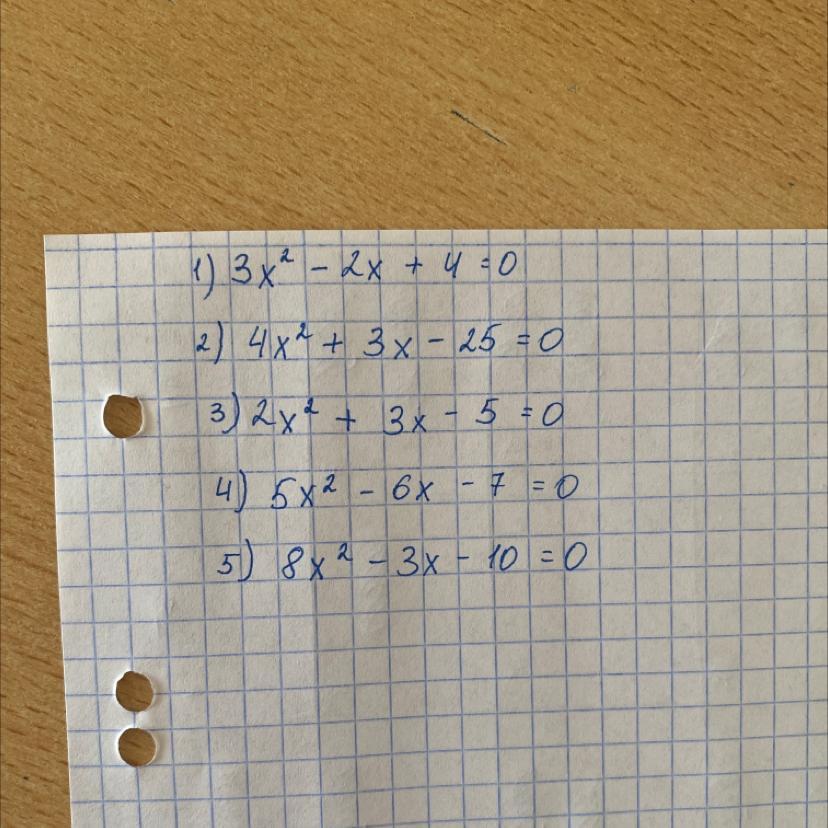 1) 3x² - 2x + 4 = 0
2) 4x² + 3x - 25 = 0
3) 2x² + 3x - 5 = 0
4) 5x² - 6x - 7 = 0
5) 8x² - 3x - 10 = 0